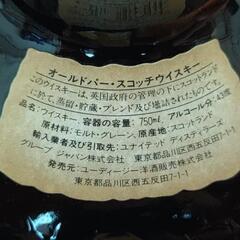 オールドパー・スコッチウイスキー
このウイスキーは、英国政府の管理の下にスコットランド
に於て、蒸留・貯蔵・ブレンド及び壜詰されたものです。
品名:ウイスキー、容器の容量:750ml、アルコール分:43度
原材料:モルト・グレーン、原産地:スコットランド
輸入業者及び引取先:ユナイテッド ディスティラーズ
グループ ジャパン株式会社 東京都品川区西五反田7-1-1
発売元:ユーディージー洋酒販売株式会社
東京都品川区西五反田7-1-1